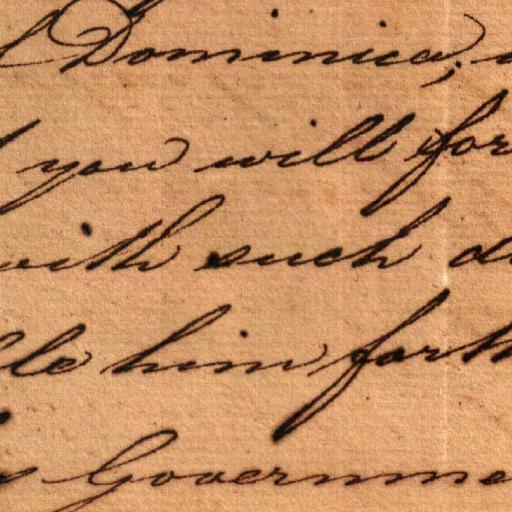 Dominica,
you will for
with such
him forth
Governme